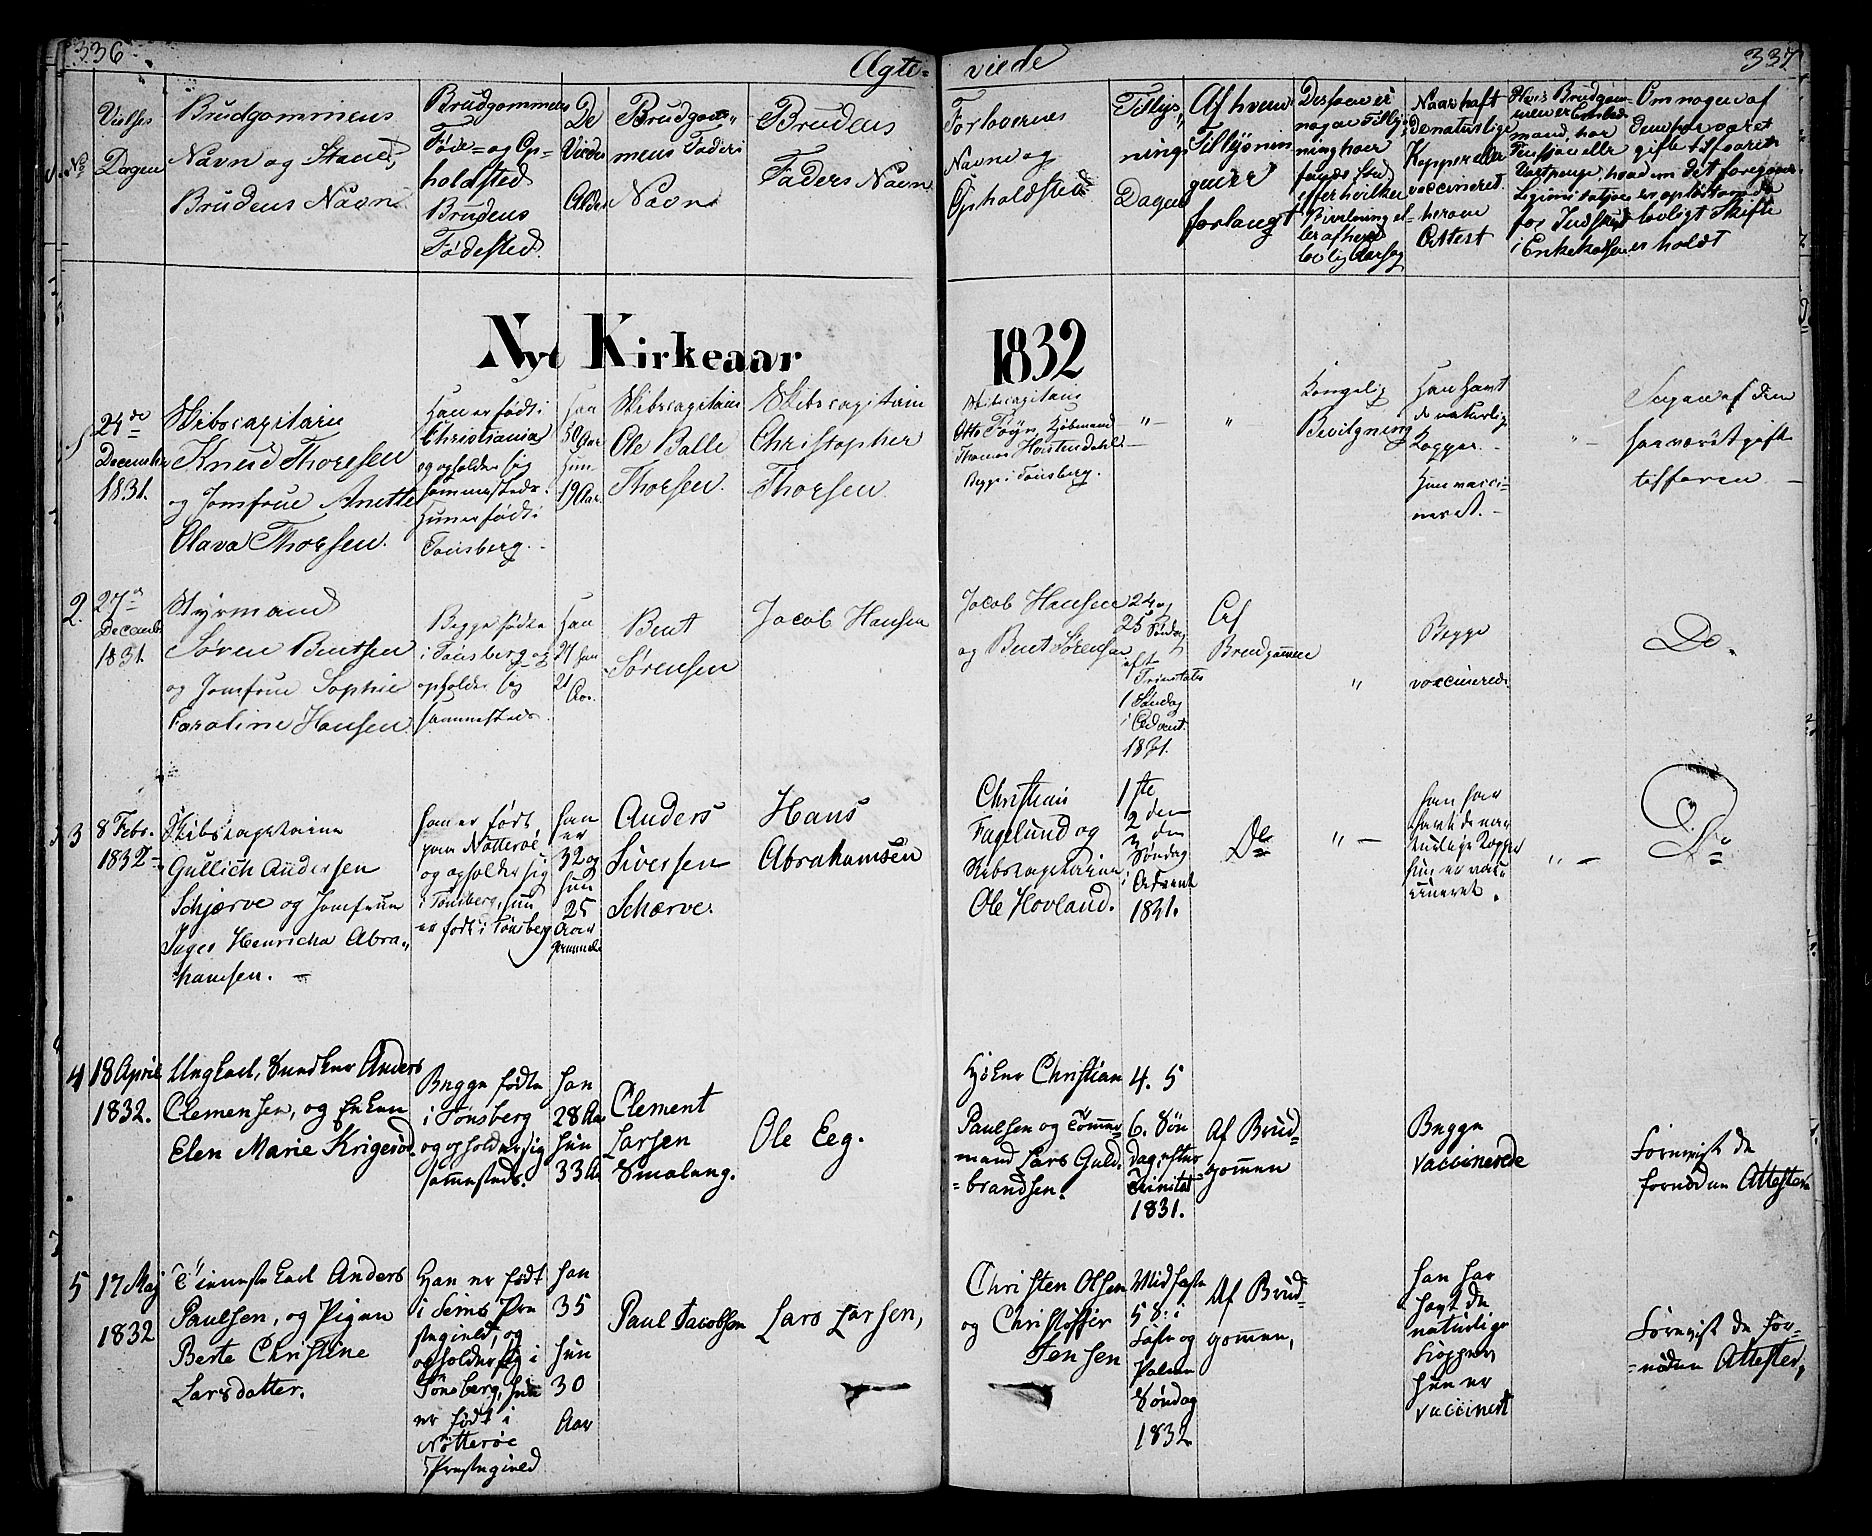 336
Ægte=
viede
337
No
Vielses
Dagen
Brudgommens
Navn og Stand,
Brudens Navn
Brudgommens
Føde= og Op-
holdsted
Brudens
Fødested
De
Viedes
Alder
Brudgom-
mens Faders
Navn
Brudens
Faders Navn
Forlovernes
Navne og
Opholdsted
Tillys„
nings
Dagen
Af hvem
Tillysnin
gen er
forlangt
Dersom ei
nogen Tillys
ning har
fundet Sted
efter hvilken
Bevilgning el-
ler af hvad
lovlig Aarsag
Naar haft
de naturlige
Kopper eller
vaccineret.
herom
Attest
Hvis Brudgom-
men er Enkemand, har
for Indførsel
i Enkekassen
Om nogen af
dem før været
gift tilforn
og da om det foregaaende
er opløst om da
lovligt Skifte
er holdt
Nyt Kirkeaar
1832
24de
December
1831.
Skibscapitain
Knud Thoresen
og Jomfrue Anette
Olava Thorsen.
Han er født i
Christiania
og opholder sig
sammesteds.
Hun er født i
Tønsberg.
Han
30 Aar
Hun
19 Aar.
Skibscapitain
Ole Balle
Thorsen.
Skibscapitain
Christopher
Thorsen.
Skibscapitain
Otto Føyn, Kjøbmand
Thomas
Begge i Tønsberg.
"–
"
Kongelig
Bevilgning
Han havt
de naturlige
Kopper.
Hun vacci=
neret.
"–
Ingen af dem
har været gift
tilforen
2.
27de
Decemb.
1831.
Styrmand
Søren Bentsen
og Jomfrue Sophie
Caroline Hansen
Begge fødte
i Tønsberg og
opholder sig
sammesteds.
Han
24 hun
21
Aar.
Bent
Sørensen
Jacob Hansen
Jacob Hansen
og Bent Sørensen
24 og
25 Søndag
eft
Trinitatis
1 Søndag
i Advent.
1831.
Af
Brudgommen
"
Begge
vaccinerede
Do.
3
8 Febr.
1832
Skibscapitaine
Gullich Andersen
Schjærve og Jomfrue
Inger Henricha Abra„
hamsen.
Han er født
paa Nøtterøe
og opholder sig
i Tønsberg, hun
er født i Tønsberg
han
er
32 og
hun
25
Aar
gammel
Anders
Siversen
Schærve.
Hans
Abrahamsen
Christian
Fagelund og
Skibscapitaine
Ole Hovland.
1ste
2den
3den
Søndag
i Advent
1831.
Do
"–
han har
havt de na-
turlige Kopper
hun er vacc
cineret.
"–
Do
4
18 April
1832.
Ungkarl, Snedker Anders
Clemensen, og Enken
Elen Marie Krigerød.
Begge fødte
i Tønsberg
og opholder sig
sammesteds.
han
28 Aar
hun
33 Aa
Clement
Larsen
Smalung.
Ole Eeg.
Høker Christian
Paulsen og Tømmer=
mand Lars Guld=
=brandsen.
4. 5
6. Søn
dag efter
Trinitat
1831.
Af Brud=
gommen
Begge
vaccinerede
Forevist de
fornødne Attester
5
17 Maj
1832
Tieneste Karl Anders
Paulsen, og Pigen
Berte Christine
Larsdatter.
Han er født
i Sems Præ
stegield, og
opholder sig i
Tønsberg, hun
er født i
Nøtterøe
Præstegield
han
35
hun
30
Aar
Paul Jacobsen
Lars Larsen,
Christen Olsen
og Christoffer
Jensen
Midfaste
5 S: i
Faste og
Palme
Søndag
1832
Af Brud=
gommen,
han har
havt de
naturlige
Kopper,
hun er
vaccineret
Forevist de for=
=nødne Attester,